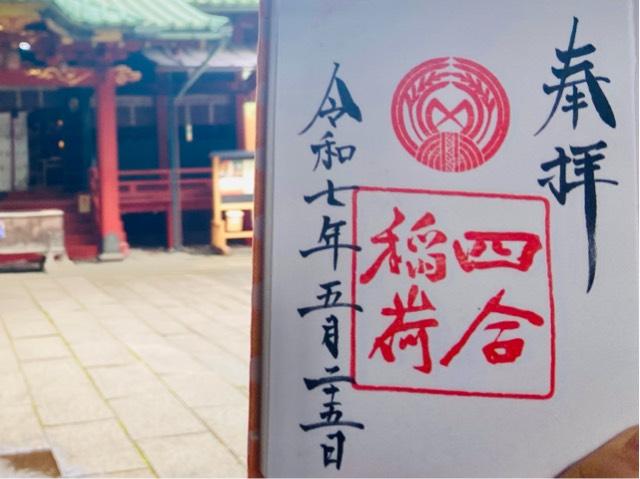 奉拝
四合
稲荷
令和七年五月二十五日